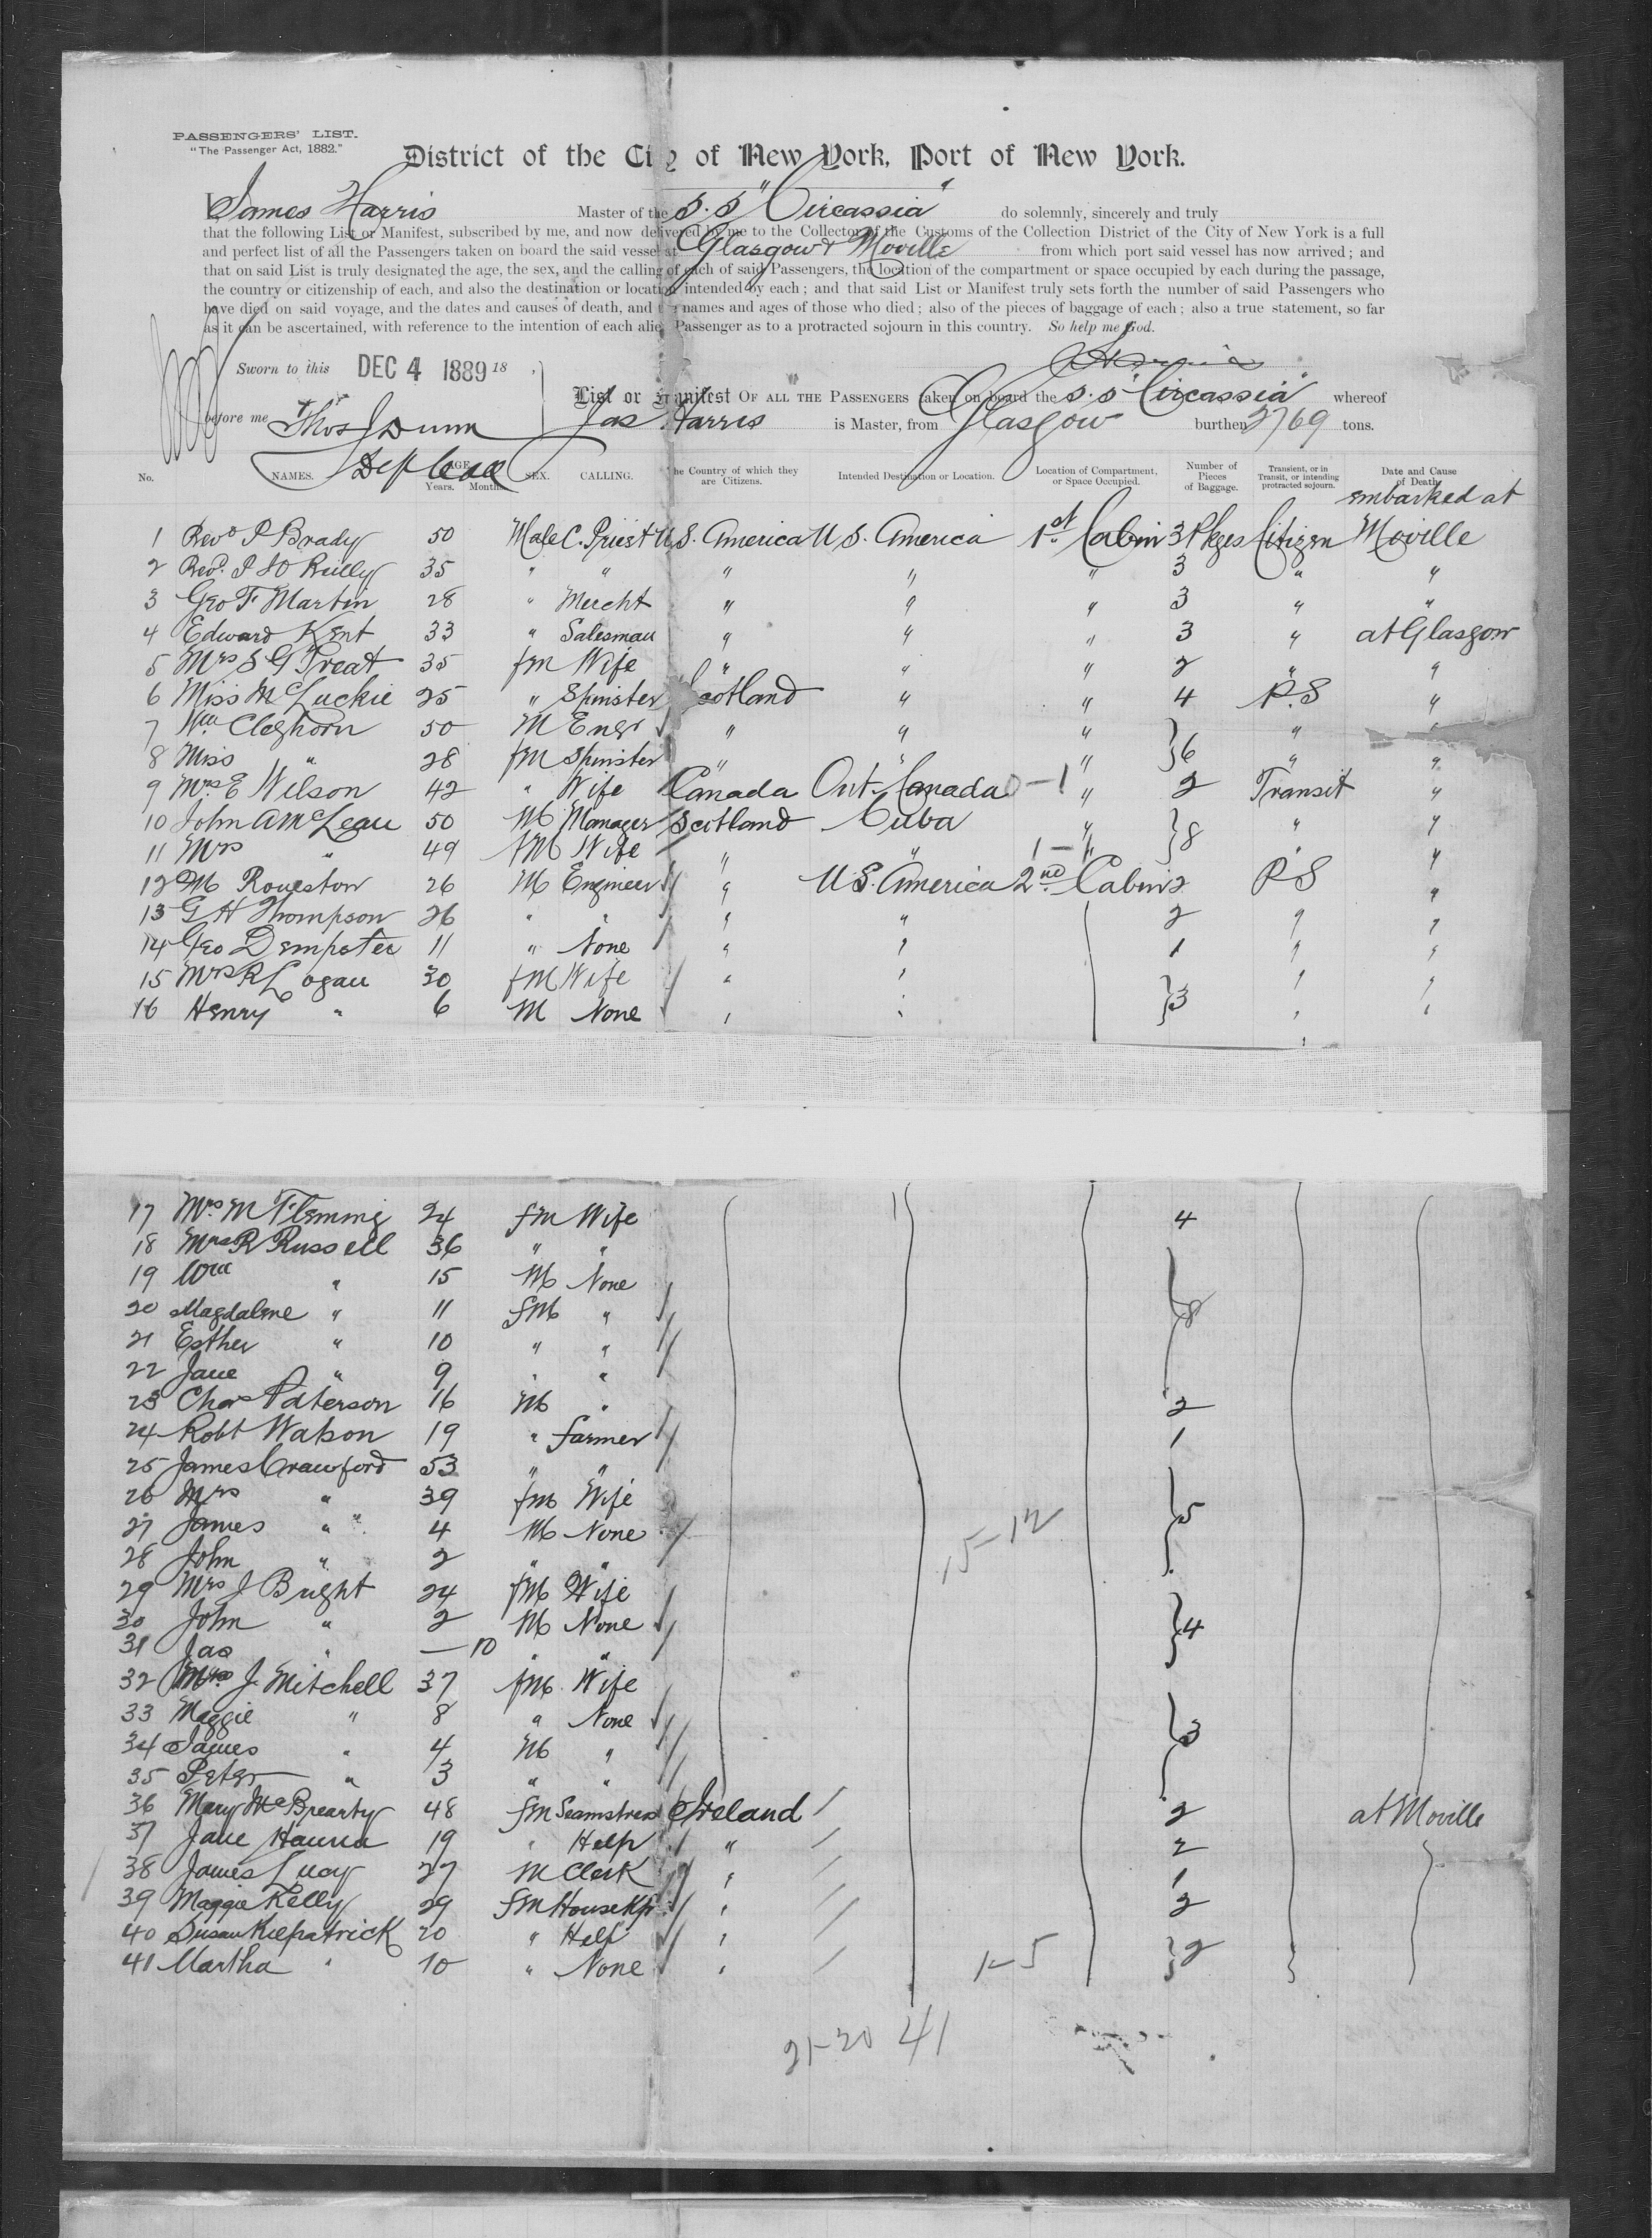 PASSENGERS' LIST.
"The Passenger Act, 1882."
District of the City of New York, Port of New York.
I James Harris Master of the S.S. "Circassia" do solemnly, sincerely and truly
that the following List or Manifest, subscribed by me, and now delivered by me to the Collector of the Customs of the Collection District of the City of New York is a full
and perfect list of all the Passengers taken on board the said vessel at Glasgow & Moville from which port said vessel has now arrived; and
that on said List is truly designated the age, the sex, and the calling of each of said Passengers, the location of the compartment or space occupied by each during the passage,
the country or citizenship of each, and also the destination or location intended by each; and that said List or Manifest truly sets forth the number of said Passengers who
have died on said voyage, and the dates and causes of death, and the names and ages of those who died; also of the pieces of baggage of each; also a true statement, so far
as it can be ascertained, with reference to the intention of each alien Passenger as to a protracted sojourn in this country. So help me God.
J Harris
Sworn to this DEC 4 1889 18 ,
before me Thos J Dunn
Dep Coll
List or Manifest OF ALL THE PASSENGERS taken on board the S.S "Circassia" whereof
Jas Harris is Master, from Glasgow burthen 2769 tons.
No. NAMES. AGE. Years. Months. SEX. CALLING. The Country of which they are Citizens. Intended Destination or Location. Location of Compartment, or Space Occupied. Number of Pieces of Baggage. Transient, or in Transit, or intending protracted sojourn. Date and Cause of Death.
embarked at
1 Revd P Brady 50 Male C. Priest U.S. America U S. America 1st Cabin 3 Pkges Citizen Moville
2 Revd. P J O Reilly 35 " " " " " 3 " "
3 Geo F Martin 28 " Mercht " " " 3 " "
4 Edward Kent 33 " Salesman " " " 3 " at Glasgow
5 Mrs S G Treat 35 fm Wife " " " 2 " "
6 Miss McLuckie 25 " Spinster Scotland " " 4 P.S "
7 Wm Cleghorn 50 M Engr " " " } 6 " "
8 Miss " 28 fm Spinster " " " "
9 Mrs E Wilson 42 " Wife Canada Ont. Canada 0-1 " 2 Transit "
10 John A McLean 50 M Manager Scotland Cuba " } 8 " "
11 Mrs " 49 fM Wife " " 1-1 " " "
12 M Rouestow 26 M Engineer " U S. America 2nd Cabin 2 P S "
13 G H Thompson 26 " " " " 2 " "
14 Geo Dempster 11 " None " " 1 " "
15 Mrs R Logan 30 fM Wife " " } 3 " "
16 Henry " 6 M None " " " "
17 Mrs M Fleming 24 fm Wife 4
18 Mrs R Russell 36 " "
19 Wm " 15 M None
20 Magdalene " 11 fM " 8
21 Esther " 10 " "
22 Jane " 9 " "
23 Chas Paterson 16 M " 2
24 Robt Watson 19 " farmer 1
25 James Crawford 53 " "
26 Mrs " 39 fm Wife } 5
27 James " " 4 M None 15-12
28 John " 2 " "
29 Mrs J Bright 24 fM Wife
30 John " 2 M None } 4
31 Jas " — 10 " "
32 Mrs J. Mitchell 37 fM. Wife
33 Maggie " 8 " None } 3
34 James " 4 M "
35 Peter " 3 " "
36 Mary McBrearty 48 fm Seamstress Ireland 2 at Moville
37 Jane Hanna 19 " Help " 2
38 James Lucy 27 M Clerk " 1
39 Maggie Kelly 29 fM House Kpr " 2
40 Susan Kilpatrick 20 " Help " } 2
41 Martha " 10 " None " 1-5
21-20 41